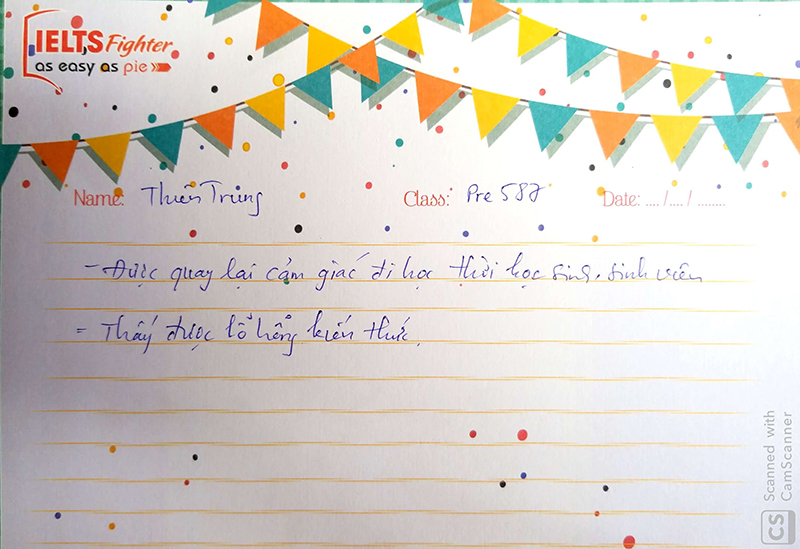 IELTS Fighter
as easy as pie
Name: Thiên Trung Class: Pre 587 Date: ..../..../........
- Được quay lại cảm giác đi học thời học sinh, sinh viên
- Thấy được lỗ hổng kiến thức.
CS Scanned with CamScanner